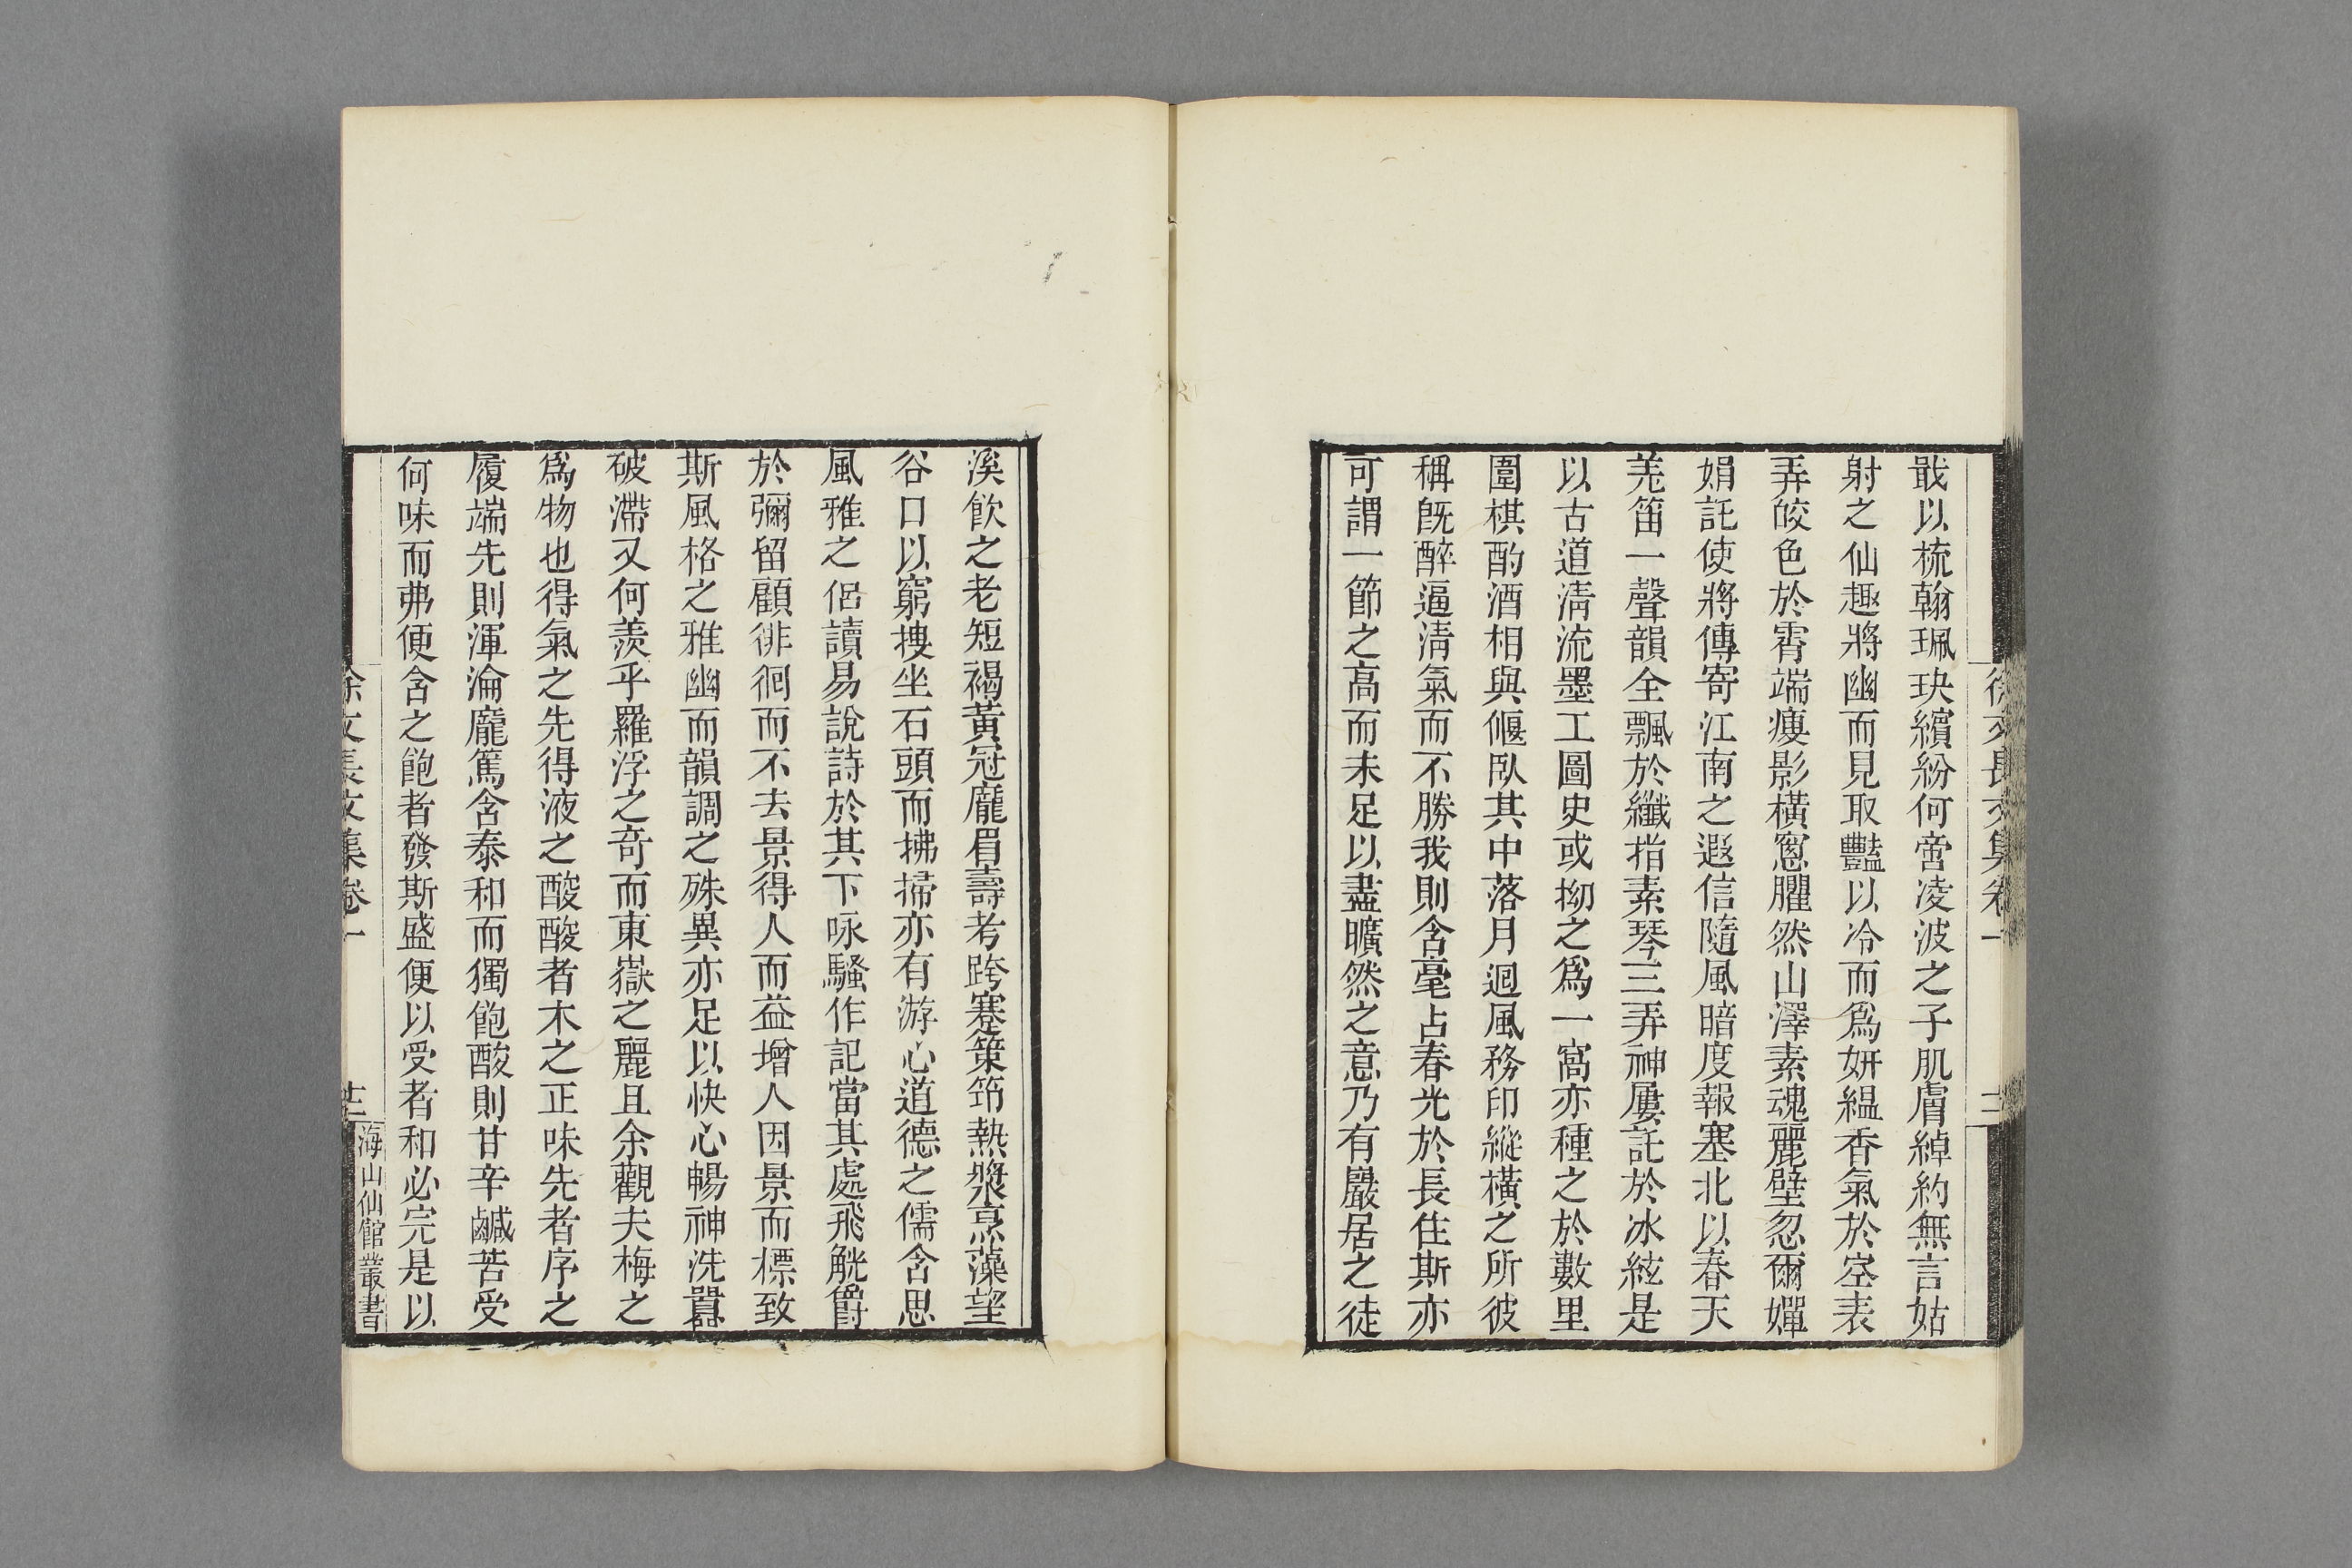 戢以梳翰珮玦繽紛何啻凌波之子肌膚綽約無言姑
射之仙趣將幽而見取豔以冷而爲妍縕香氣於空表
弄皎色於霄端瘦影橫窻臞然山澤素魂麗壁忽爾嬋
娟託使將傳寄江南之遐信隨風暗度報塞北以春天
羌笛一聲韻全飄於纖指素琴三弄神屢託於冰絃是
以古道淸流墨工圖史或拗之爲一窩亦種之於數里
圍棋酌酒相與偃臥其中落月迴風務印縱橫之所彼
稱旣醉逼淸氣而不勝我則含毫占春光於長住斯亦
可謂一節之高而未足以盡曠然之意乃有嚴居之徒
徐文長文集卷一
二
溪飮之老短褐黃冠龐眉壽考跨蹇策笻熱漿烹藻望
谷口以窮搜坐石頭而拂掃亦有游心道德之儒含思
風雅之侶讀易說詩於其下咏騷作記當其處飛觥爵
於彌留顧徘徊而不去景得人而益增人因景而標致
斯風格之雅幽而韻調之殊異亦足以快心暢神洗囂
破滯又何羨乎羅浮之奇而東嶽之麗且余觀夫梅之
爲物也得氣之先得液之酸酸者木之正味先者序之
履端先則渾淪龐篤含泰和而獨飽酸則甘辛鹹苦受
何味而弗便含之飽者發斯盛便以受者和必完是以
徐文長文集卷一
海山仙館叢書